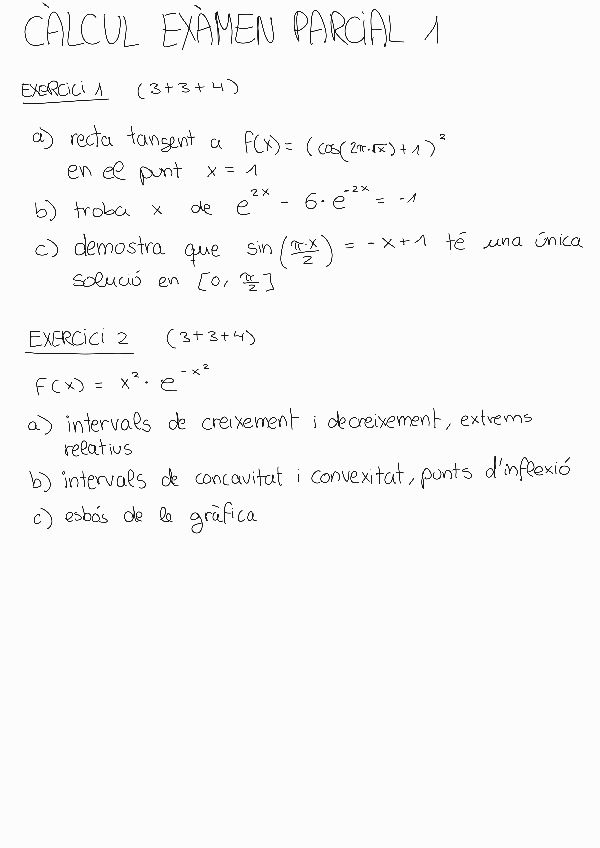 CÀLCUL EXÀMEN PARCIAL 1
EXERCICI 1 (3+3+4)
a) recta tangent a f(x) = (cos(2π·√x)+1)²
en el punt x = 1
b) troba x de e^{2x} - 6·e^{-2x} = -1
c) demostra que sin(π·x/2) = -x+1 té una única
solució en [0, π/2]
EXERCICI 2 (3+3+4)
f(x) = x²·e^{-x²}
a) intervals de creixement i decreixement, extrems
relatius
b) intervals de concavitat i convexitat, punts d'inflexió
c) esbós de la gràfica